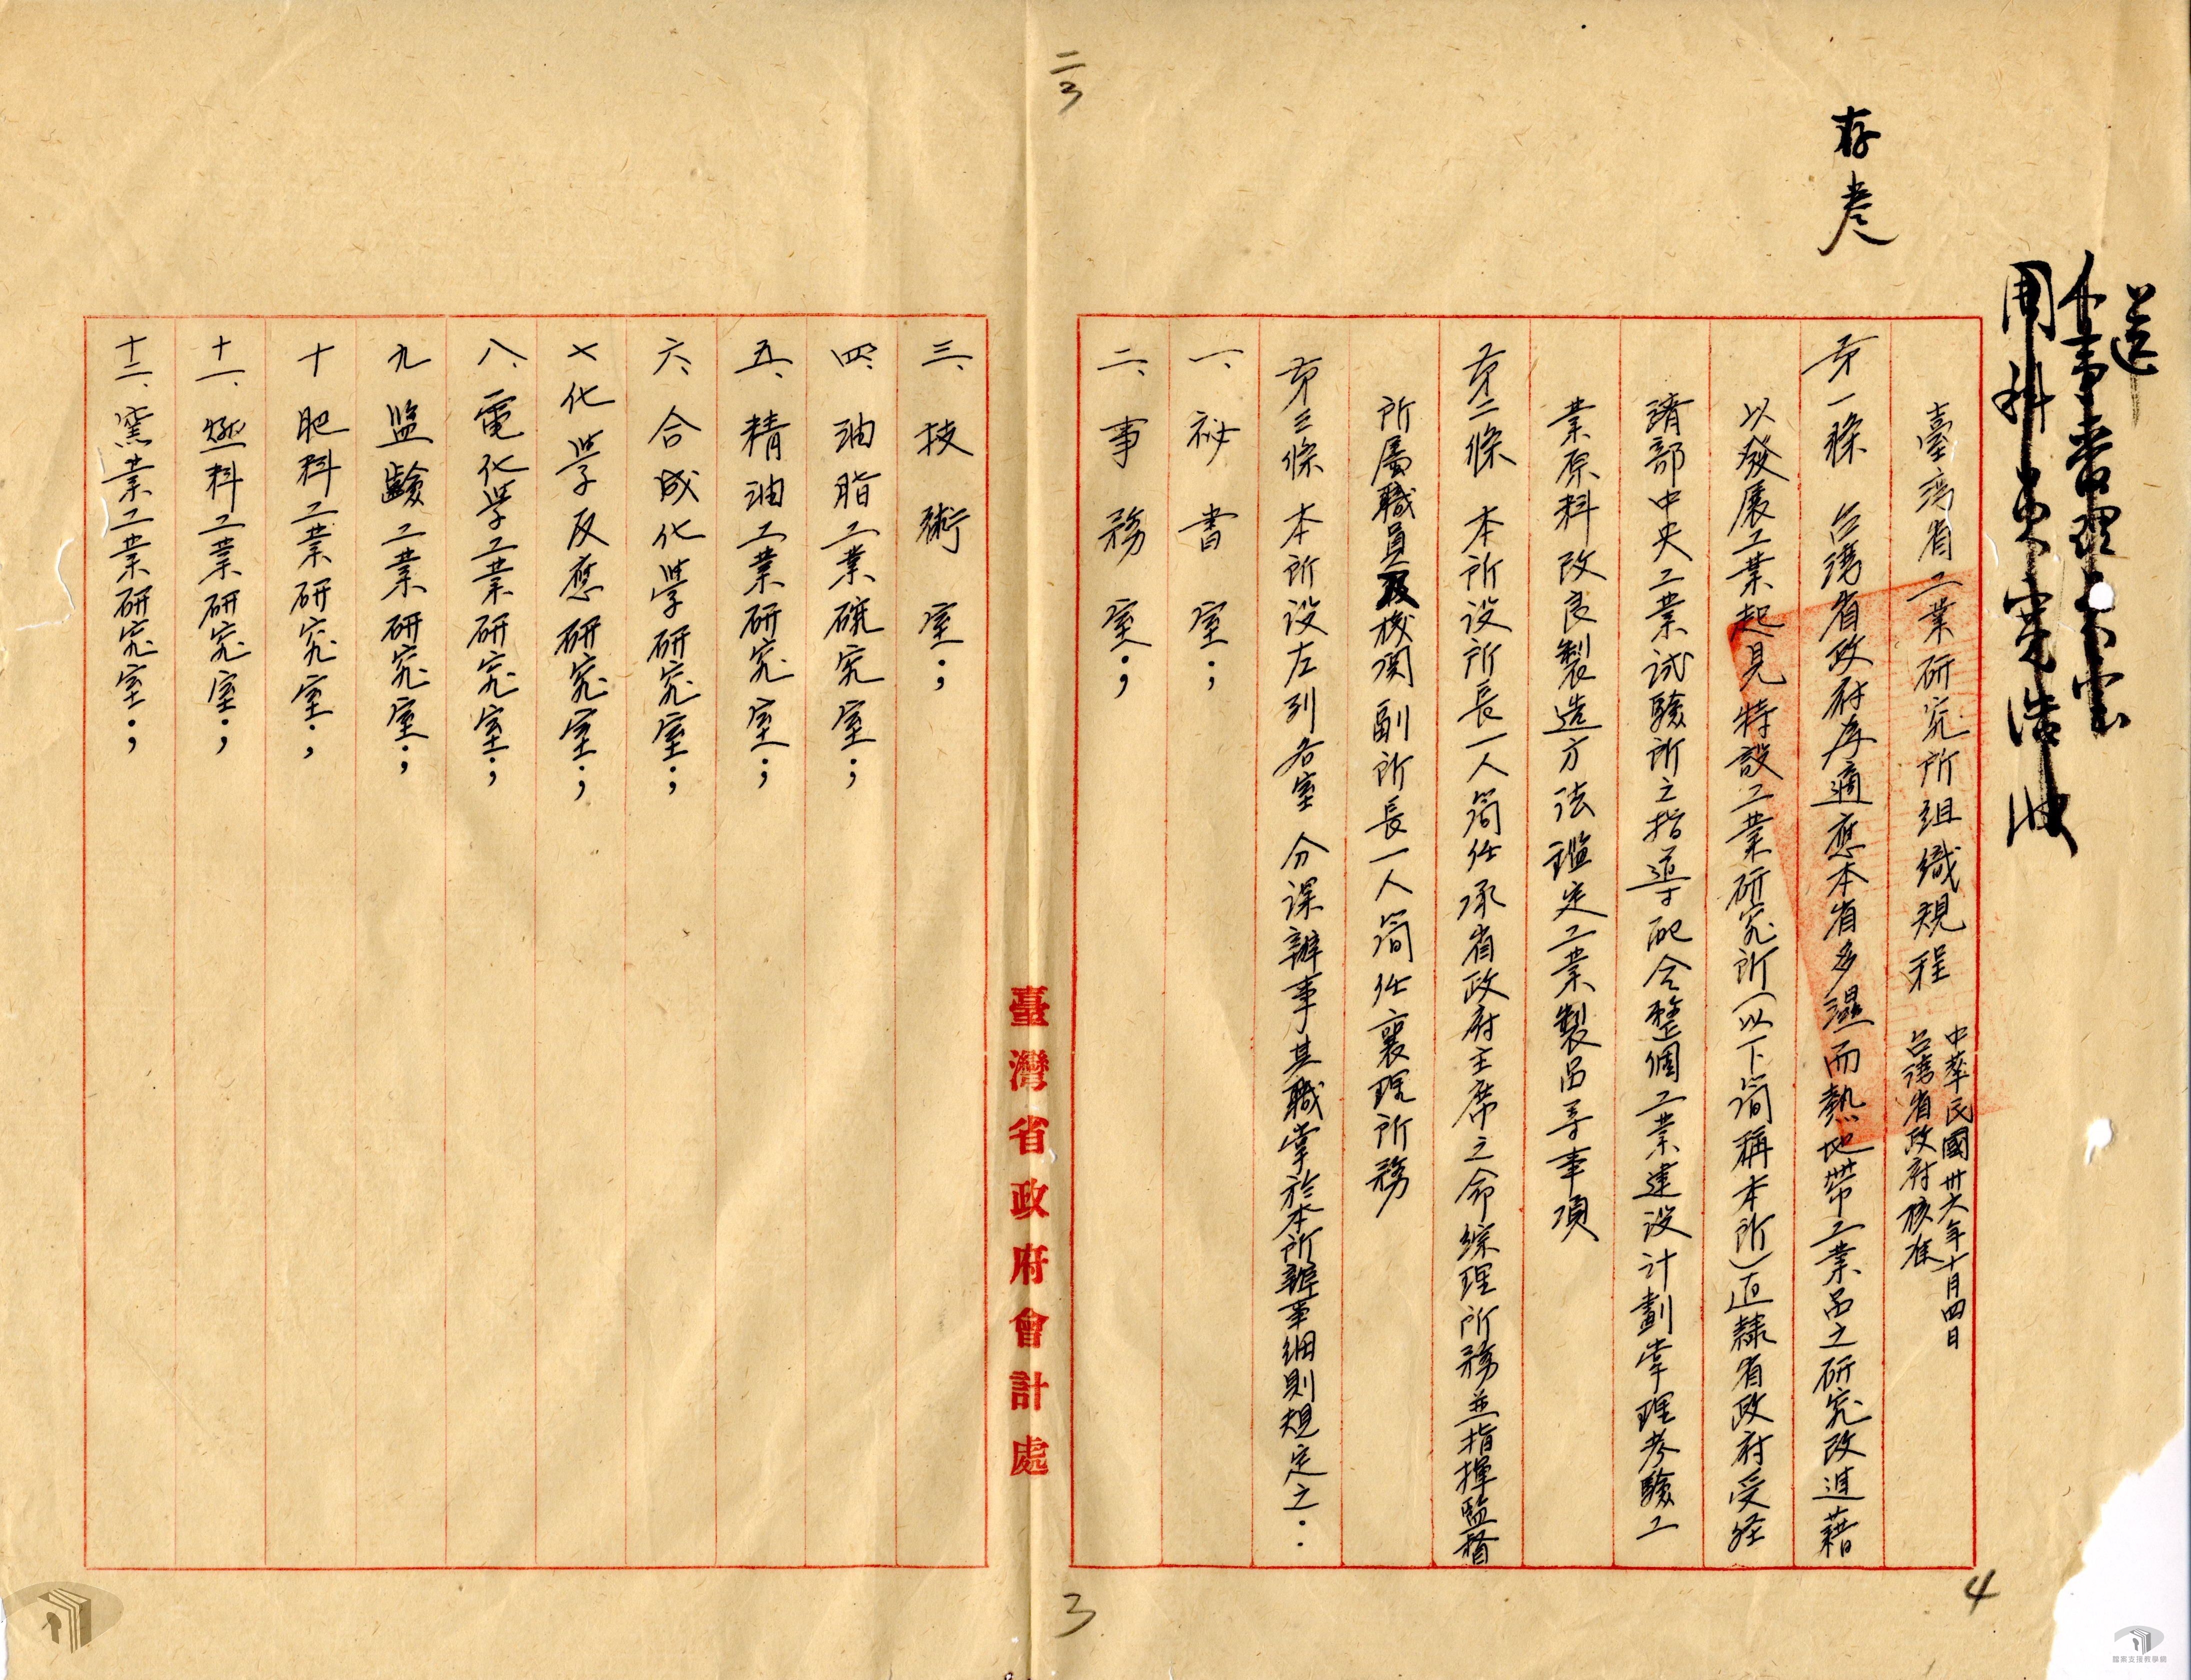 存考
送
臺灣省工業研究所組織規程
中華民國卅六年十月四日
台灣省政府核准
第一條 台灣省政府為適應本省多濕而熱地帶工業品之研究改進藉
以發展工業起見特設工業研究所(以下簡稱本所)直隸省政府受經
濟部中央工業試驗所之指導配合整個工業建設計劃掌理考驗工
業原料改良製造方法鑑定工業製品等事項
第二條 本所設所長一人簡任承省政府主席之命綜理所務並指揮監督
所屬職員及機関副所長一人簡任襄理所務
第三條 本所設左列各室 分課辦事其職掌於本所辦事細則規定之:
一、祕書室;
二、事務室;
臺灣省政府會計處
三、技術室;
四、油脂工業研究室;
五、精油工業研究室;
六、合成化學研究室;
七化學反應研究室;
八、電化学工業研究室;
九鹽工業研究室;
十肥料工業研究室;
十一、燃料工業研究室;
十二、窯業工業研究室;
二3
3
4
檔案支援教學網